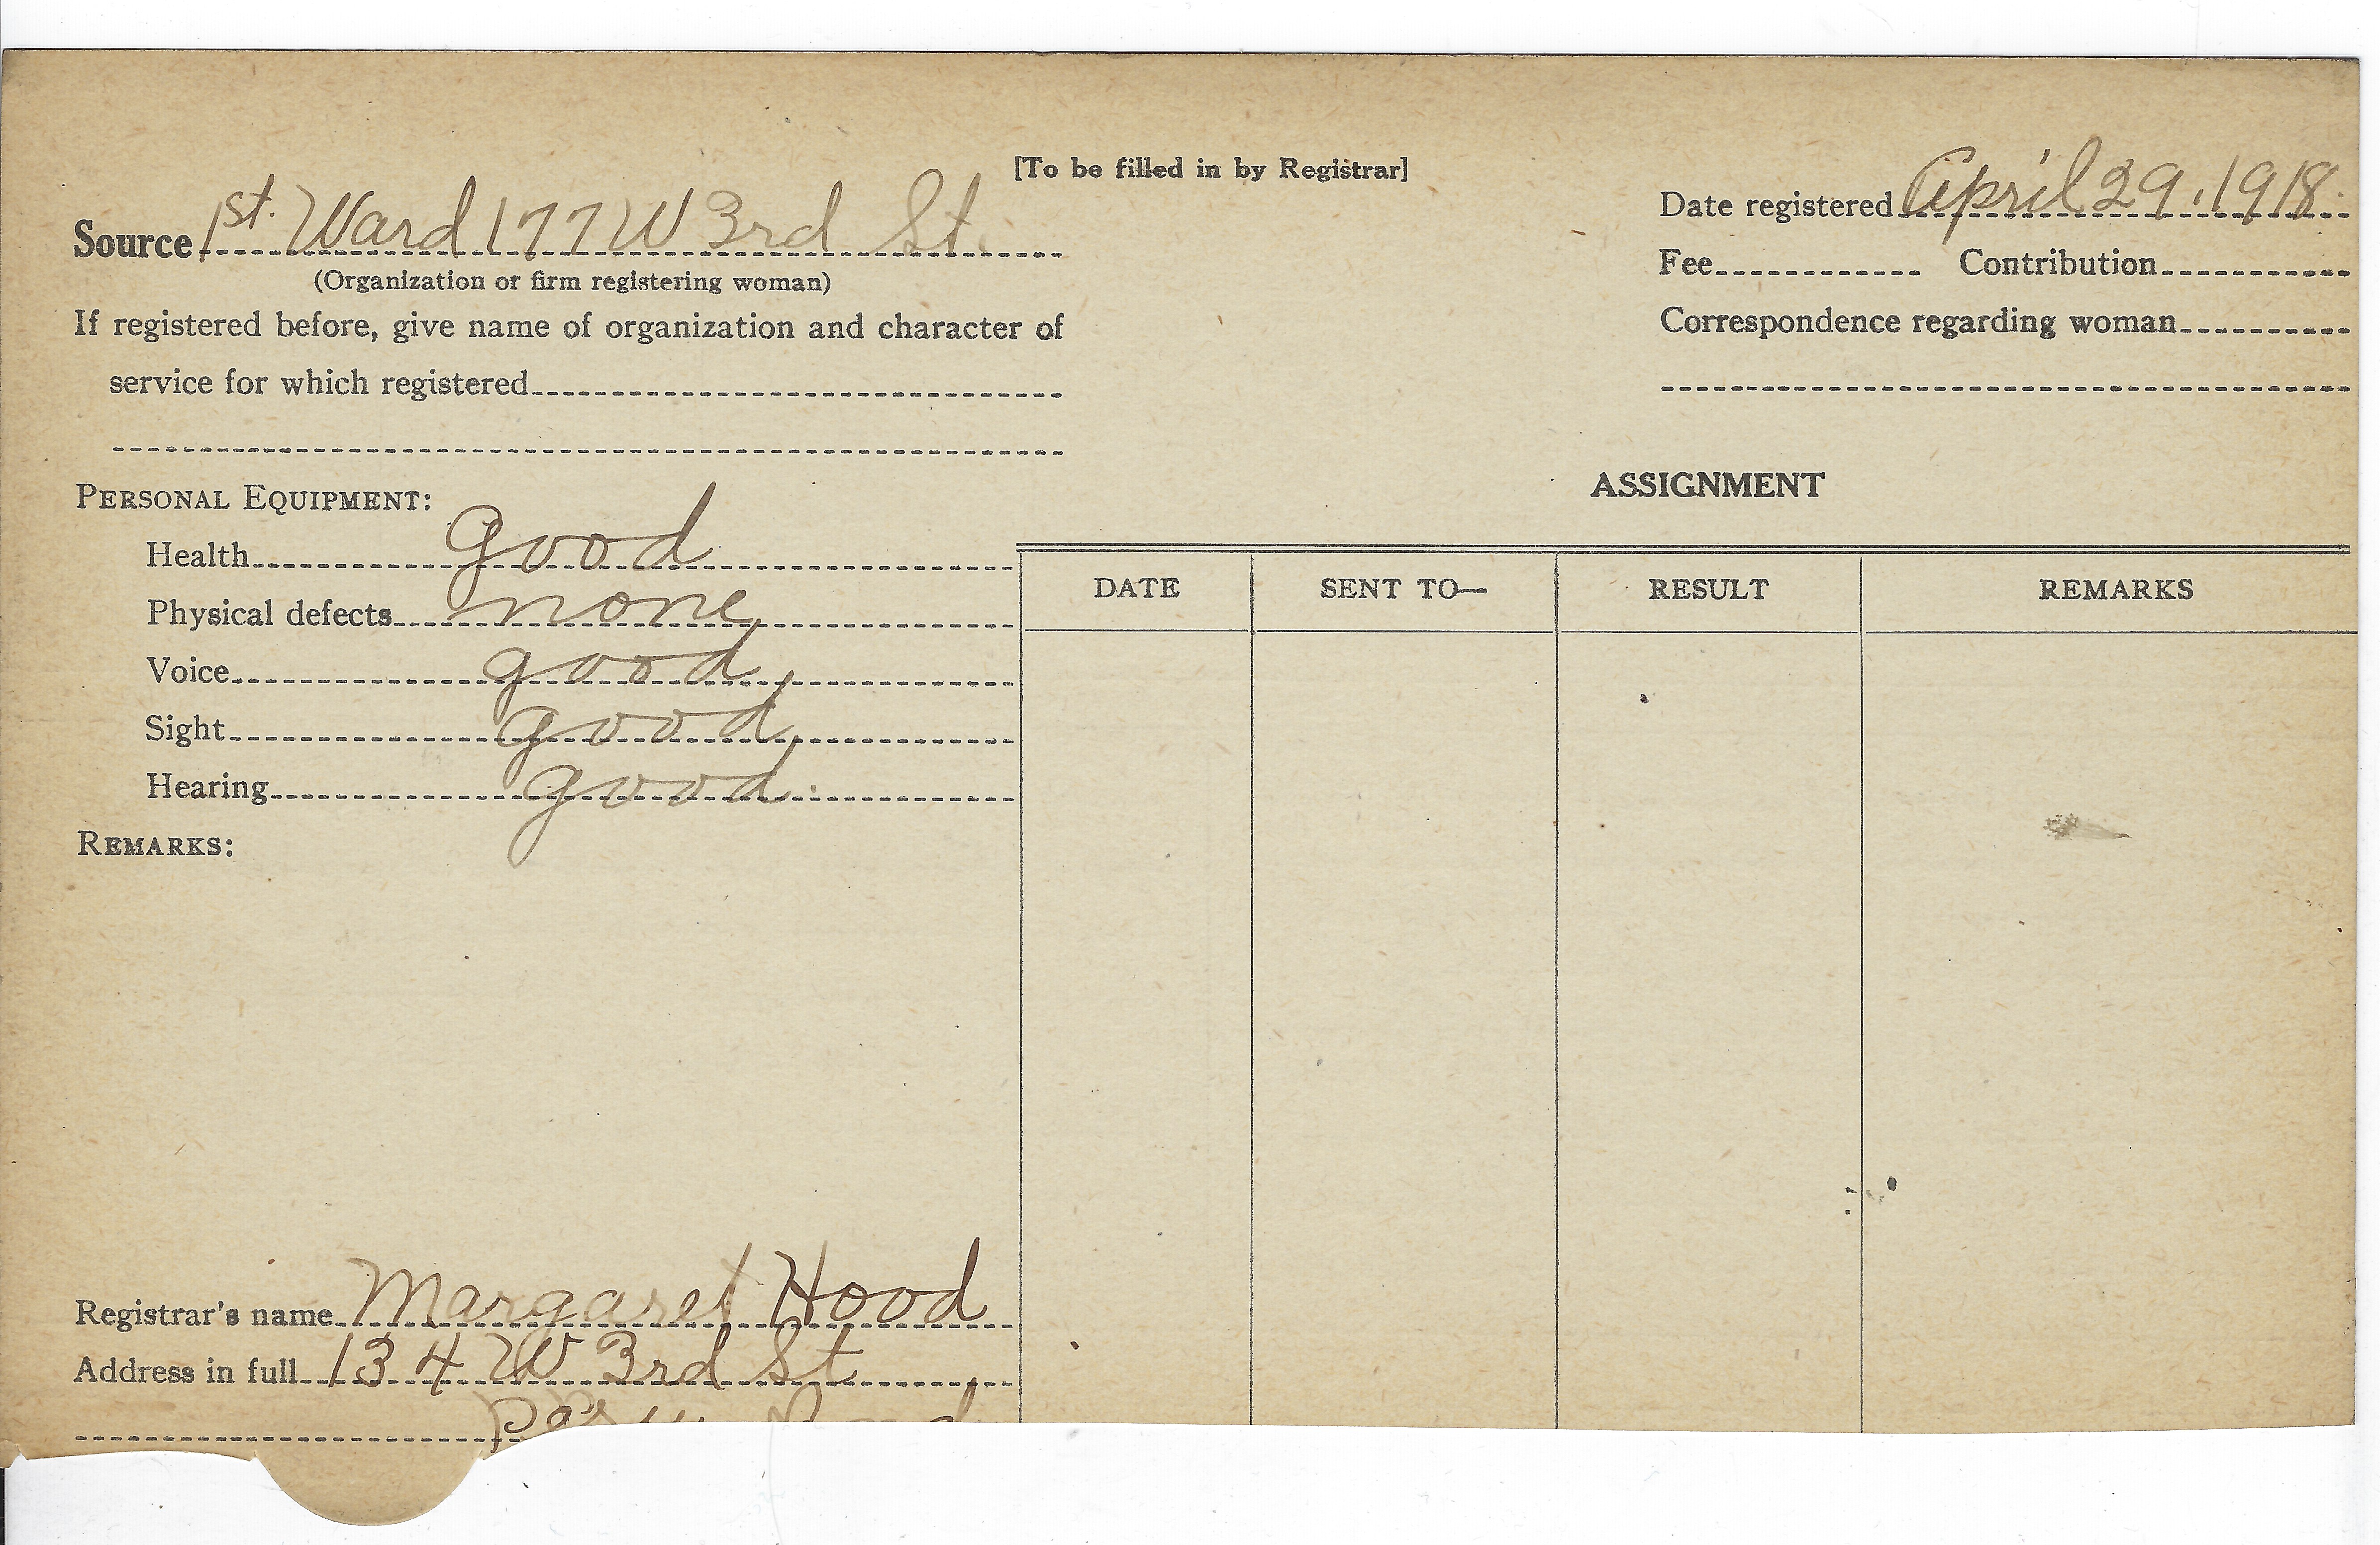 [To be filled in by Registrar]
Source 1st. Ward 177 W 3rd St.
(Organization or firm registering woman)
If registered before, give name of organization and character of
service for which registered
Date registered April 29, 1918.
Fee Contribution
Correspondence regarding woman
PERSONAL EQUIPMENT:
Health Good
Physical defects none
Voice good
Sight good
Hearing good.
REMARKS:
ASSIGNMENT
DATE SENT TO— RESULT REMARKS
Registrar's name Margaret Hood
Address in full 134 W 3rd St